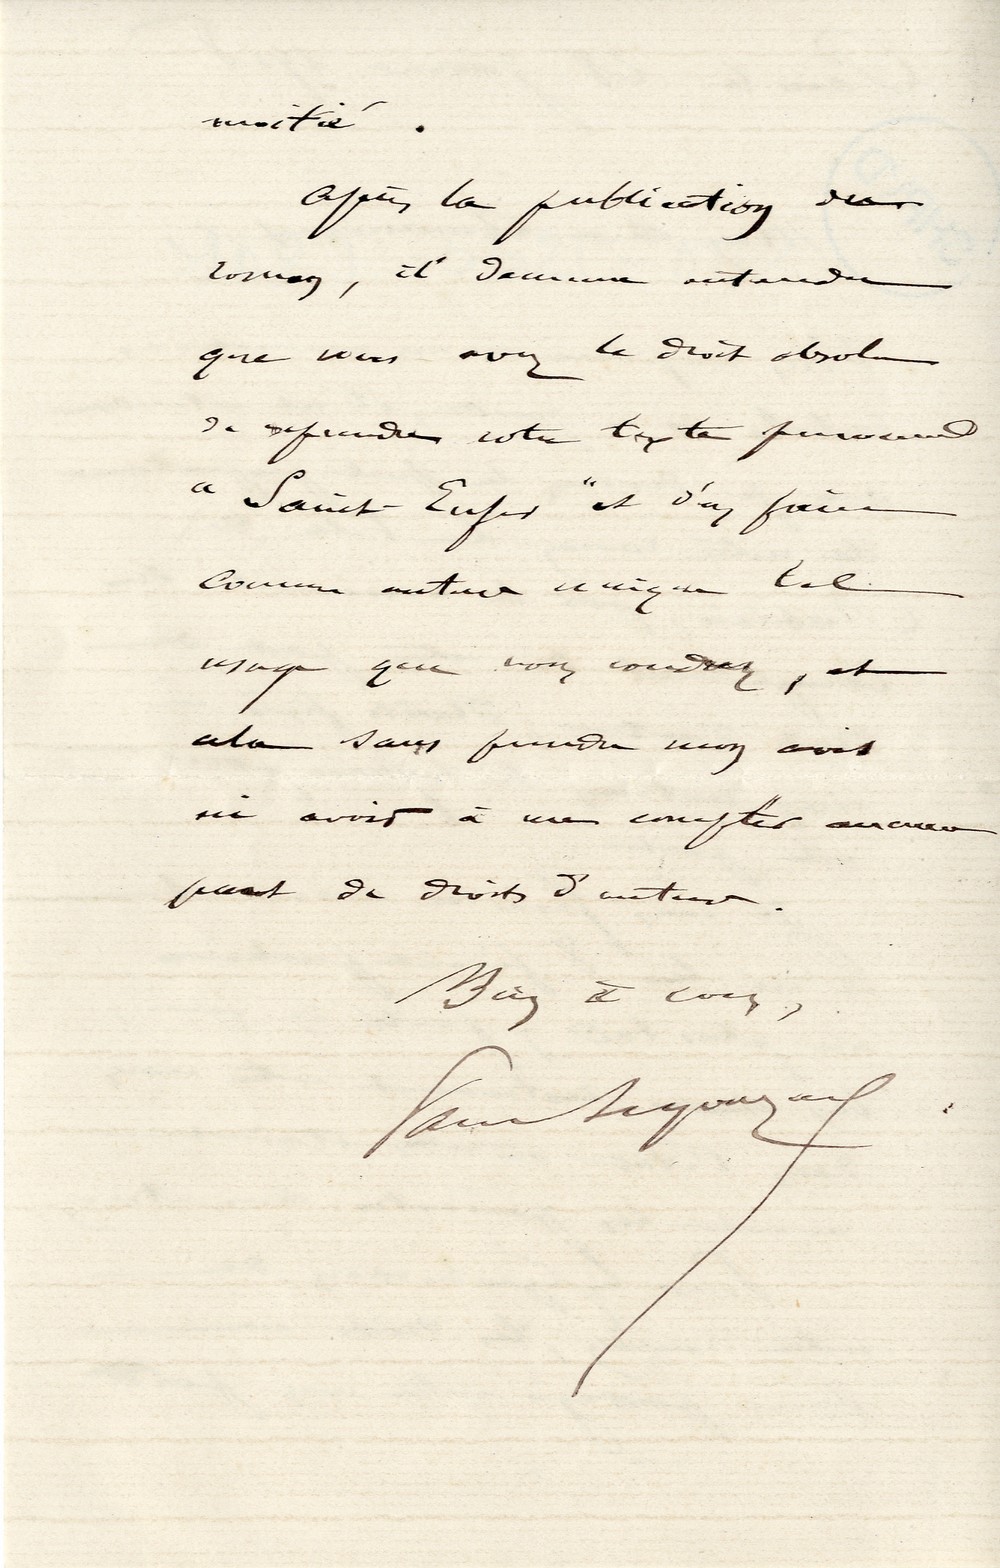 moitié.
Après la publication du
roman, il demeure entendu
que vous avez le droit absolu
de reprendre votre texte personnel
"Saint-Enfer" et d'en faire
comme auteur unique tel
usage que vous voudrez, et
cela sans prendre mon avis
ni avoir à me compter aucune
part de droits d'auteur.
Bien à vous,